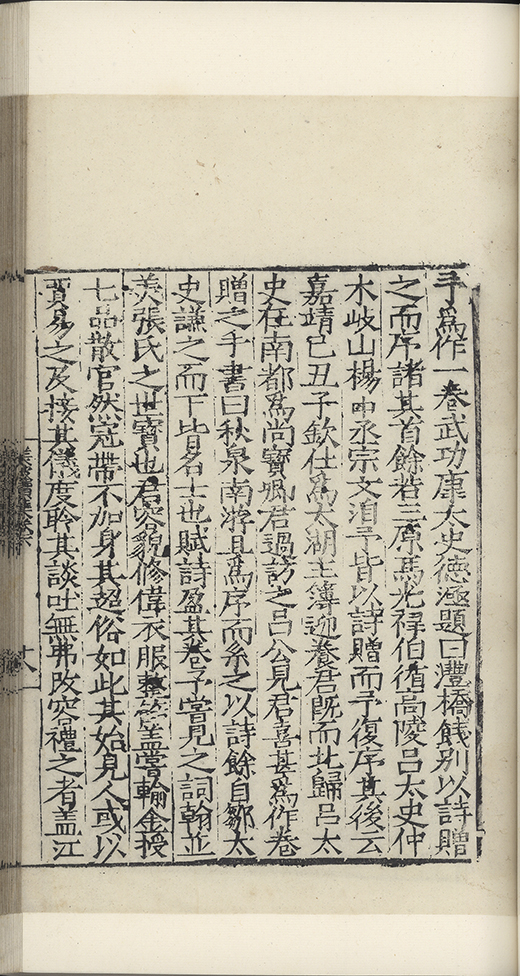 手為作一卷武功康太史德涵題曰灃橋餞別以詩贈
之而序諸其首餘若三原馬光祿伯循高陵呂太史仲
木岐山楊中丞宗文洎予皆以詩贈而予復序其後云
嘉靖己丑子欽仕為太湖主簿迎養君既而北歸呂太
史在南都為尚寶卿君過訪之呂公見君喜甚為作卷
贈之手書曰秋泉南游且為序而系之以詩餘自鄒太
史謙之而下皆名士也賦詩盈其卷予嘗見之詞翰並
美張氏之世寶也君容貌修偉衣服整签盖嘗輸金授
七品散官然冠帶不加身其超俗如此其始見人或以
賈易之及接其儀度聆其談吐無弗改容禮之者盖江
十八